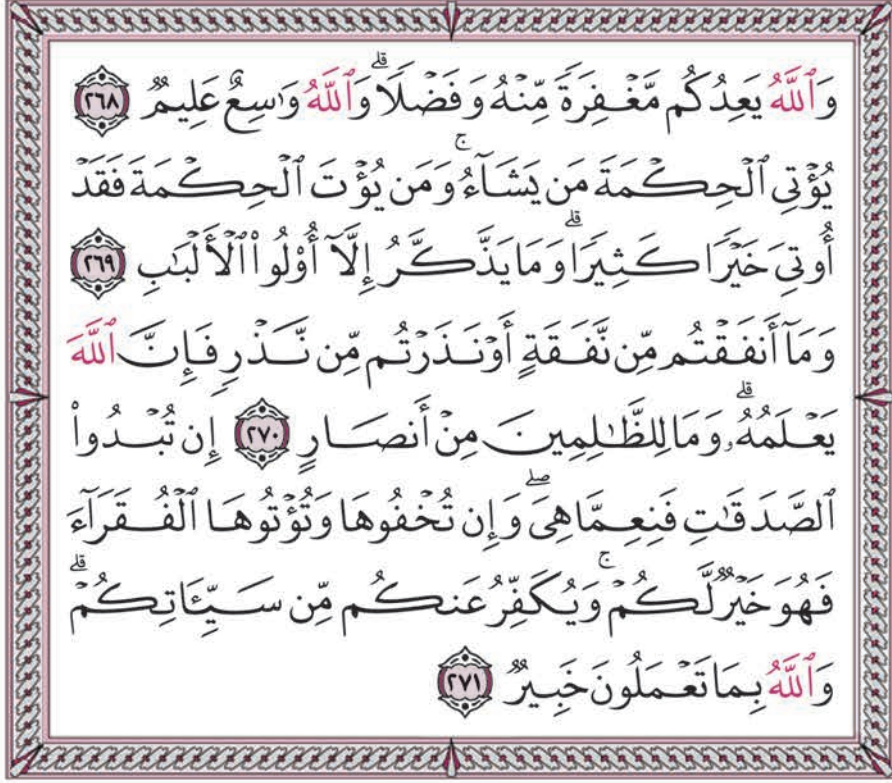 وَٱللَّهُ يَعِدُكُم مَّغۡفِرَةٗ مِّنۡهُ وَفَضۡلٗاۗ وَٱللَّهُ وَٰسِعٌ عَلِيمٞ ٢٦٨
يُؤۡتِي ٱلۡحِكۡمَةَ مَن يَشَآءُۚ وَمَن يُؤۡتَ ٱلۡحِكۡمَةَ فَقَدۡ
أُوتِيَ خَيۡرٗا كَثِيرٗاۗ وَمَا يَذَّكَّرُ إِلَّآ أُوْلُواْ ٱلۡأَلۡبَٰبِ ٢٦٩
وَمَآ أَنفَقۡتُم مِّن نَّفَقَةٍ أَوۡ نَذَرۡتُم مِّن نَّذۡرٖ فَإِنَّ ٱللَّهَ
يَعۡلَمُهُۥۗ وَمَا لِلظَّٰلِمِينَ مِنۡ أَنصَارٍ ٢٧٠ إِن تُبۡدُواْ
ٱلصَّدَقَٰتِ فَنِعِمَّا هِيَۖ وَإِن تُخۡفُوهَا وَتُؤۡتُوهَا ٱلۡفُقَرَآءَ
فَهُوَ خَيۡرٞ لَّكُمۡۚ وَيُكَفِّرُ عَنكُم مِّن سَيِّـَٔاتِكُمۡۗ
وَٱللَّهُ بِمَا تَعۡمَلُونَ خَبِيرٞ ٢٧١